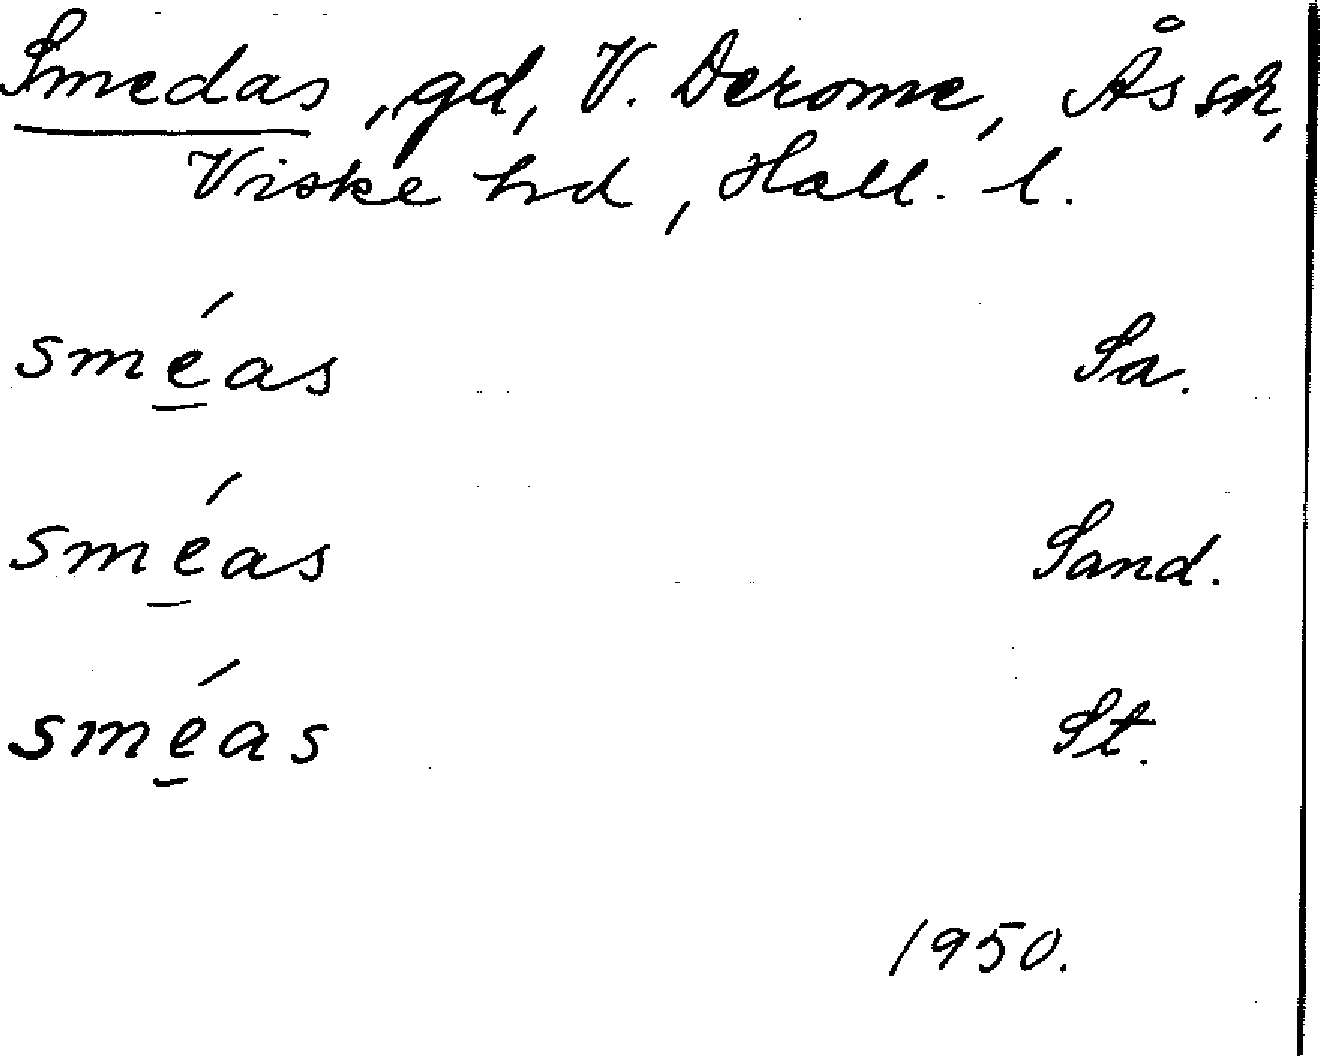 Smedas, gd, V. Derome, Ås sn,
Viske hd, Hall. l.
smé̲as Sa.
smé̲as Sand.
smé̲as St.
1950.